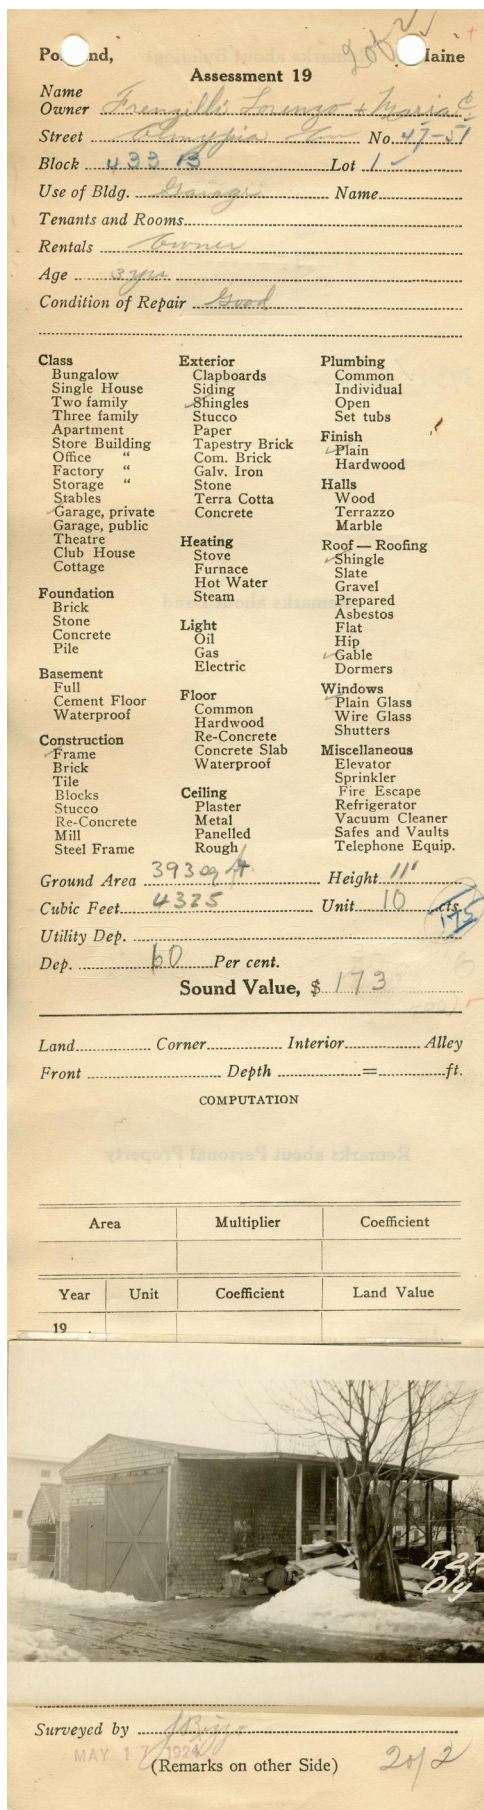 Portland, Maine
2 of 2
Assessment 19
Name
Owner Frenzilli Lorenzo + Maria C.
Street Olmypia No. 47-51
Block 433 B Lot 1
Use of Bldg. Garage Name
Tenants and Rooms
Rentals Owner
Age 3 yrs
Condition of Repair Good
Class
Bungalow
Single House
Two family
Three family
Apartment
Store Building
Office "
Factory "
Storage "
Stables
Garage, private
Garage, public
Theatre
Club House
Cottage
Foundation
Brick
Stone
Concrete
Pile
Basement
Full
Cement Floor
Waterproof
Construction
Frame
Brick
Tile
Blocks
Stucco
Re-Concrete
Mill
Steel Frame
Exterior
Clapboards
Siding
Shingles
Stucco
Paper
Tapestry Brick
Com. Brick
Galv. Iron
Stone
Terra Cotta
Concrete
Heating
Stove
Furnace
Hot Water
Steam
Light
Oil
Gas
Electric
Floor
Common
Hardwood
Re-Concrete
Concrete Slab
Waterproof
Ceiling
Plaster
Metal
Panelled
Rough
Plumbing
Common
Individual
Open
Set tubs
Finish
Plain
Hardwood
Halls
Wood
Terrazzo
Marble
Roof — Roofing
Shingle
Slate
Gravel
Prepared
Asbestos
Flat
Hip
Gable
Dormers
Windows
Plain Glass
Wire Glass
Shutters
Miscellaneous
Elevator
Sprinkler
Fire Escape
Refrigerator
Vacuum Cleaner
Safes and Vaults
Telephone Equip.
Ground Area 393 sq ft Height 11'
Cubic Feet 4325 Unit 10 cts.
175
Utility Dep.
Dep. 60 Per cent.
Sound Value, $ 173
Land Corner Interior Alley
Front Depth = ft.
COMPUTATION
Remarks about Personal Property
Area Multiplier Coefficient
Year Unit Coefficient Land Value
19
R 27
Oly
Surveyed by
MAY 17 1924
(Remarks on other Side) 2 of 2